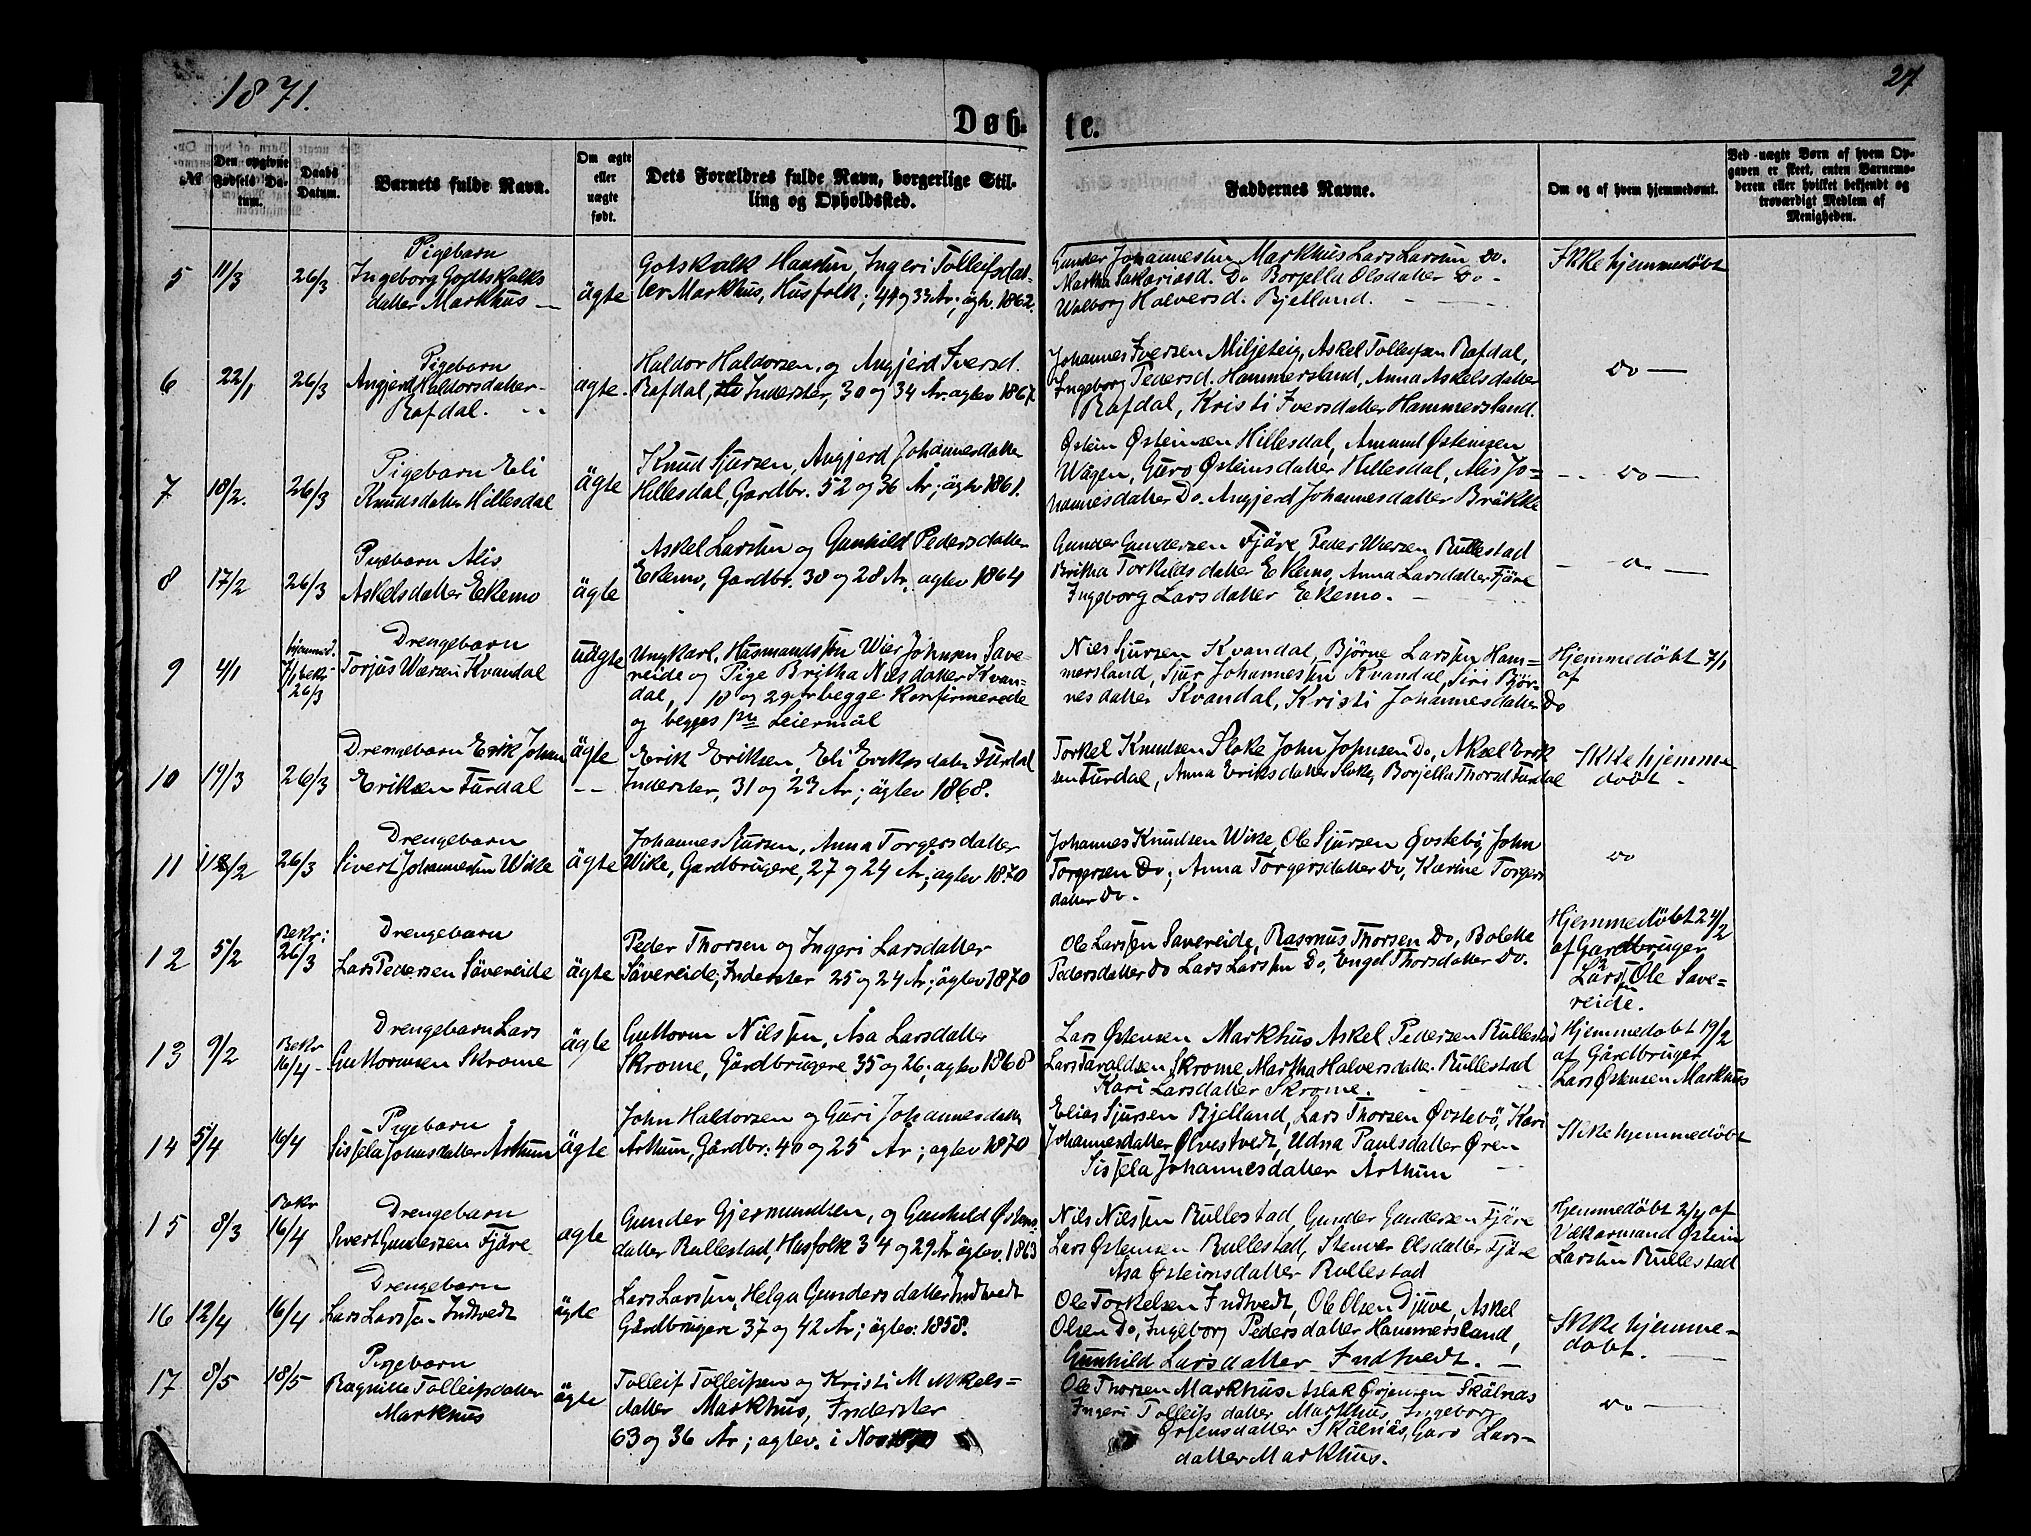 1871.
27
Døb-
te.
№
Den opgivne Fødsels Datum.
Daabs Datum.
Barnets fulde Navn.
Om ægte eller uægte født.
Dets Forældres fulde Navn, borgerlige Stilling og Opholdssted.
Faddernes Navne.
Om og af hvem hjemmedøbt.
Ved uægte Børn af hvem Opgaven er skeet, enten Barnemoderen eller hvilket bekjendt og troværdigt Medlem af Menigheden.
5 11/3 26/3
Pigebarn
Ingeborg Godtskalks
datter Markhus
ägte
Gotskalk Hansen, Ingeri Tolleifsdat-
ter Markhus, Husfolk; 44 og 33 År; ägtv. 1862.
Gunder Johannessen Markhus Lars Larsen Do.
Martha Sakariasd. Do Borjella Olsdatter Do -
Walborg Halversd. Bjelland.
Ikke hjemmedöbt
6 22/1 26/3
Pigebarn
Angjerd Haldorsdatter
Rafdal.
ägte.
Haldor Haldorsen, og Angjerd Iversd.
Rafdal, Inderster, 30 og 34 År. ägtev 1867.
Johannes Iversen Miljeteig, Askel Tolleifsen Rafdal,
Ingeborg Pedersd. Hammersland, Anna Askelsdatter
Rafdal, Kristi Iversdatter Hammersland.
Do
7 18/2. 26/3
Pigebarn Eli
Knudsdatter Hillesdal
ägte
Knud Sjursen, Angjerd Johannesdatter
Hillesdal, Gardbr. 52 og 36 År; ägtv 1861.
Østein Østeinsen Hillesdal, Amund Østeinsen
Wågen, Guro Østeinsdatter Hillesdal, Alis Jo=
hannesdatter Do. Angjerd Johannesdatter Bräkke
Do
8 17/2 26/3
Pigebarn Alis
Askelsdatter Ekemo
ägte
Askel Larsen og Gunhild Pedersdatter
Ekemo, Gardbr. 38 og 28 År, agtev 1864
Gunder Gundersen Fjäre, Peder Wiersen Rullestad
Britha Torkildsdatter Ekemo, Anna Larsdatter Fjäre
Ingeborg Larsdatter Ekemo.
9 4/1
hjemmed.
7/1 bekr.
26/3
Drengebarn
Torjus Wiersen Kvandal
uägte
Ungkarl. Husmandssøn Wier Johnsen Save-
reide og Pige Britha Nilsdatter Kvan-
dal, 18 og 29 År begge konfirmerede
og begges 1ste Leiermål
Niels Sjursen Kvandal, Bjørne Larssen Ham=
mersland, Sjur Johannessen Kvandal, Siri Bjør-
nesdatter Kvandal, Kristi Johannesdatter Do
Hjemmedöbt 7/1
af
10 19/3 26/3
Drengebarn Erik Johan
Eriksen Furdal
ägte
Erik Eriksen, Eli Eriksdatter Furdal
Inderster, 31 og 23 År; ägtev 1868.
Torkel Knudsen Sloke, John Johnsen Do, Aksel Erik
sen Furdal, Anna Eriksdatter Sloke, Borjella Thorsd Furdal
Ikke hjemme
döbt
11 18/2 26/3
Drengebarn
Sivert Johannessen Wike
ägte
Johannes Aursen, Anna Torgersdatter
Wike, Gardbrugere, 27 og 24 År; agtev 1870
Johannes Knudsen Wike, Ole Sjursen Øvstebø, John
Torgersen Do; Anna Torgersdatter Do, Karine Torgers
datter Do.
Do
12 5/2
Bekr:
26/3
Drengebarn
Lars Pedersen Sävereide
ägte
Peder Thorsen og Ingeri Larsdatter
Sävereide; Inderster 25 og 24 År; ägtev 1870
Ole Larssen Savereide, Rasmus Thorsen Do, Bolette
Pedersdatter Do Lars Larssen Do, Engel Thorsdatter Do.
Hjemmedöbt 24/2
af Gardbruger
Lars Ole Save=
reide.
13 9/2
Bekr
16/4
Drengebarn Lars
Guttormsen Skrome
ägte
Guttorm Nilssen, Åsa Larsdatter
Skrome, Gårdbrugere 35 og 26; agtev 1868
Lars Østensen Markhus Askel Pedersen Rullestad
Lars Taraldsen Skrome, Martha Halversdatter Rullestad
Kari Larsdatter Skrome.
Hjemmedöbt 19/2
af Gårdbruger
Lars Østensen Markhus
14 5/4 16/4
Pigebarn
Sissela Johnsdatter Årthun
ägte
John Haldorsen og Guri Johannesdatter
Årthun, Gårdbr: 40 og 25 År; agtev 1870
Elias Sjursen Bjelland, Lars Thorsen Øvstebö, Kari
Johannesdatter Ølvestvedt, Udna Paulsdatter Øren
Sissela Johannesdatter Årthun
Ikke hjemmedöbt
15 8/3
Bekr
16/4
Drengebarn
Sivert Gundersen Fjäre
ägte
Gunder Gjermundsen, og Gunhild Østens
datter Rullestad, Husfolk 34 og 29 År ägtev. 1863
Nils Nilssen Rullestad, Gunder Gundersen Fjäre
Lars Østensen Rullestad, Stenvor Olsdatter Fjäre
Åsa Østeinsdatter Rullestad
Hjemmedöbt 2/4 af
Vækarmand Østein
Larssen Rullestad
16 12/4 16/4
Drengebarn
Lars Larssen Indtvedt
ägte
Lars Larssen, Helga Gundersdatter Indtvedt
Gårdbrugere 37 og 42 År; ägtev: 1858.
Ole Torkelsen Indtvedt, Ole Olsen Djuve, Askel
Olsen Do, Ingeborg Pedersdatter Hammersland,
Gunhild Larsdatter Indtvedt.
Ikke hjemme-
döbt.
17 8/5 18/5
Pigebarn
Ragnilla Tolleifsdatter
Markhus
ägte
Tolleif Tolleifsen og Kristi Mikkels=
datter Markhus, Inderster
63 og 36 År; agtev. i Nov 1870
Ole Thorsen Markhus Aslak Ørjensen Skålnäs
Ingeri Tolleifsdatter Markhus, Ingeborg
Ørjensdatter Skålnäs, Guro Lars-
datter Markhus.
Do